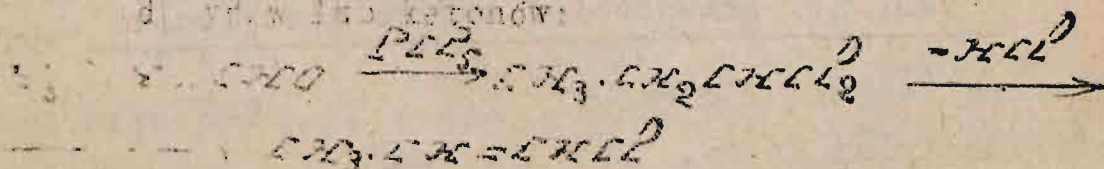 ketonów:
CHO PCl₅ CH₃.CH₂CHCl₂ -HCl
CH₃.CH=CHCl